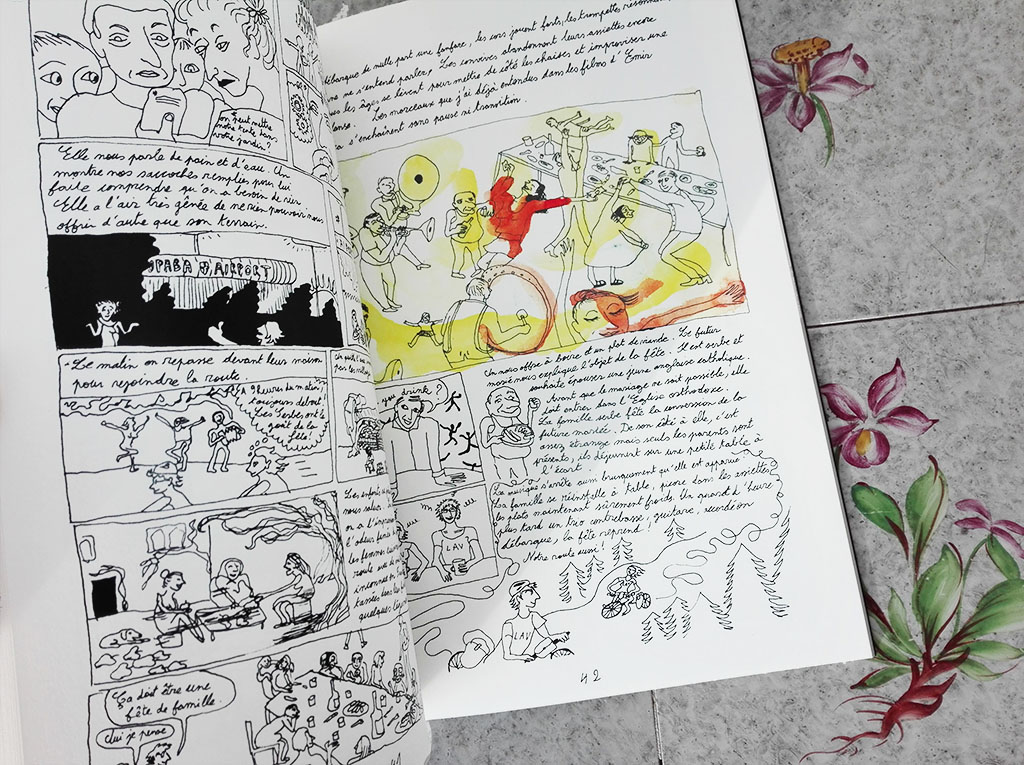 on peut mettre
notre tente dans
votre jardin ?
Elle nous parle de pain et d'eau. On
montre nos sacoches remplies pour lui
faire comprendre qu'on a besoin de rien.
Elle a l'air très gênée de ne rien pouvoir nous
offrir d'autre que son terrain.
Le matin on repasse devant leur maison
pour rejoindre la route.
heures du matin,
toujours debout.
Les Serbes, ont le
goût de la
fête !
Les enfants
nous saluent
on a l'imp
l'odeur
les femmes
route
quelques
Ça doit être une
fête de famille.
Oui je pense
41
débarque de nulle part une fanfare, les cors jouent forts, les trompettes résonnent,
ne s'entend parler. Les convives abandonnent leurs assiettes encore
les âges se lèvent pour mettre de côté les chaises et improviser une
danse. Les morceaux que j'ai déjà entendus dans les films d'Emir
s'enchaînent sans pause ni transition.
On nous offre à boire et un plat de viande. Le futur
marié nous explique l'objet de la fête. Il est serbe et
souhaite épouser une jeune anglaise catholique.
Avant que le mariage ne soit possible, elle
doit entrer dans l'Eglise orthodoxe.
La famille serbe fête la conversion de la
future mariée. De son côté à elle, c'est
assez étrange mais seuls les parents sont
présents, ils déjeunent sur une petite table à
l'écart.
you drink ?
La musique s'arrête aussi brusquement qu'elle est apparue.
La famille se réinstalle à table, picore dans les assiettes
les plats maintenant sûrement froids. Un quart d'heure
plus tard un trio contrebasse, guitare, accordéon
débarque, la fête reprend !
Notre route aussi !
LAV
LAV
42